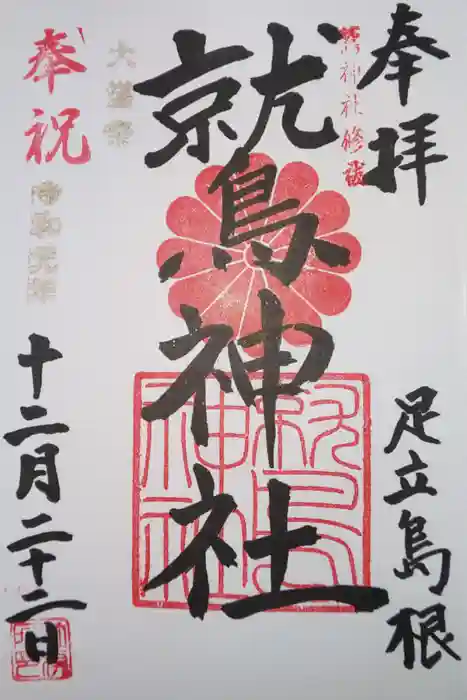 奉拝
鷲神社修祓
足立島根
鷲神社
大嘗祭
奉祝
令和元年
十二月二十二日